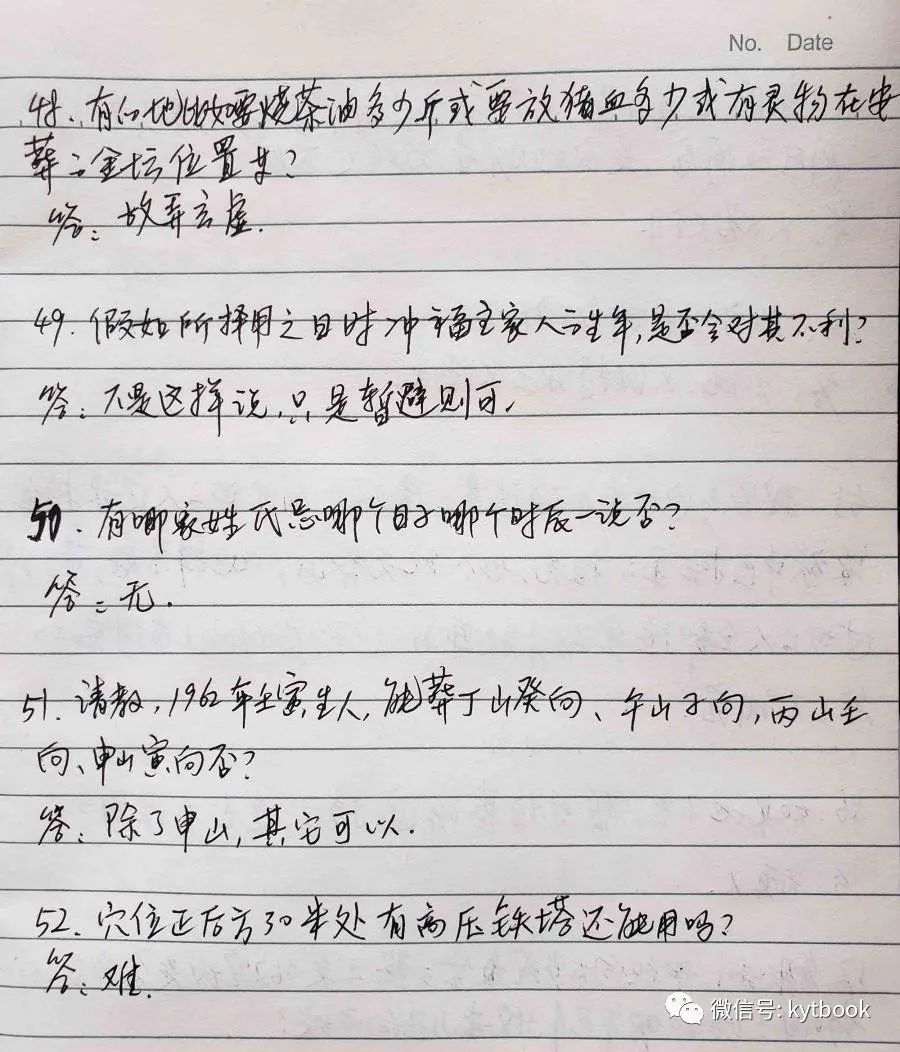 No. Date
48. 有的地比如要烧茶油多少斤或要放猪血多少或有灵物在安
葬之金坛位置等?
答: 故弄玄虚.
49. 假如所择用之日时冲福主家人之生年,是否会对其不利?
答: 不是这样说,只是暂避则可.
50. 有哪家姓氏忌哪个日子哪个时辰一说否?
答: 无.
51. 请教,1962年壬寅生人,能葬丁山癸向、午山子向,丙山壬
向、申山寅向否?
答: 除了申山,其它可以.
52. 穴位正后方30米处有高压铁塔还能用吗?
答: 难.
微信号: kytbook